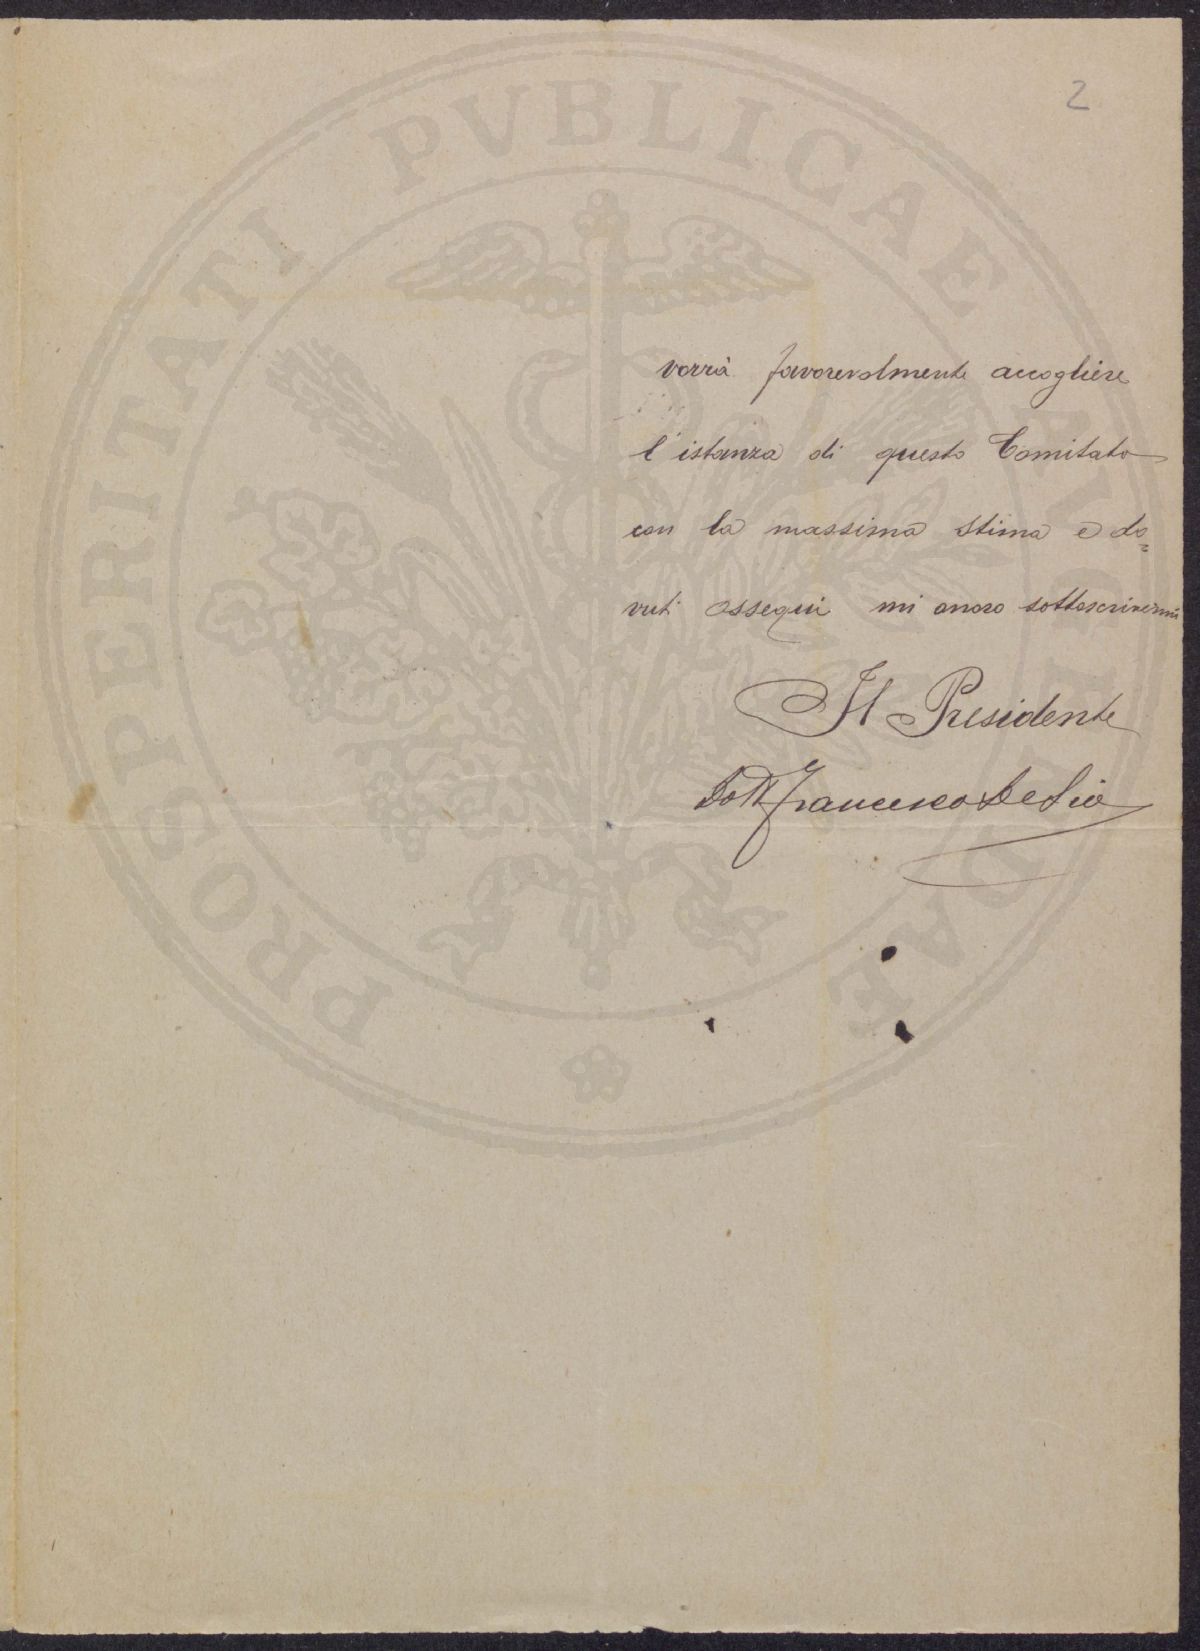 2
vorrà favorevolmente accogliere
l'istanza di questo Comitato
con la massima stima e do=
vuti ossequi mi onoro sottoscrivermi
Il Presidente
Dott Francesco De Sio
PROSPERITATI PVBLICAE AVGENDAE